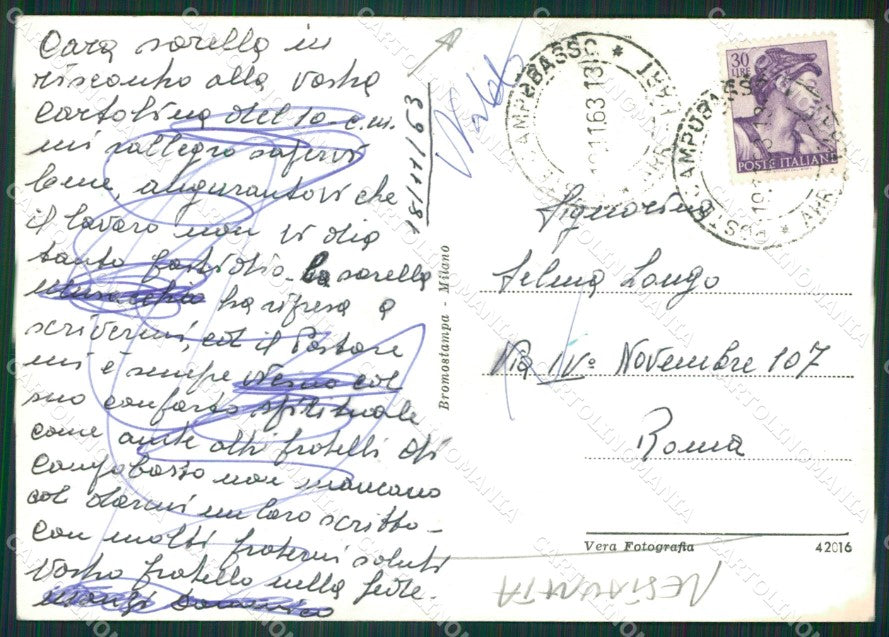 Cara sorella in
riscontro alla vostra
cartolina del 10 c.m.
mi rallegro sapervi
bene, augurantovi che
il lavoro non vi dia
tanto fastidio. La sorella
ha ripresa a
scrivermi, ed il Pastore
mi è sempre vicino col
suo conforto spirituale
come anche altri fratelli di
Campobasso non mancano
col darmi un loro scritto -
Con molti fraterni saluti
Vostro fratello nella fede.
Domenico
18/11/63
Bromostampa - Milano
CAMPOBASSO * ARR. PART
19.11.63 13
30
LIRE
POSTE ITALIANE
CAMPOBASSO * ARR. POSTA
Signorina
Selma Longo
Via IVº Novembre 107
Roma
Vera Fotografia
42016
CARTOLINOMANIA